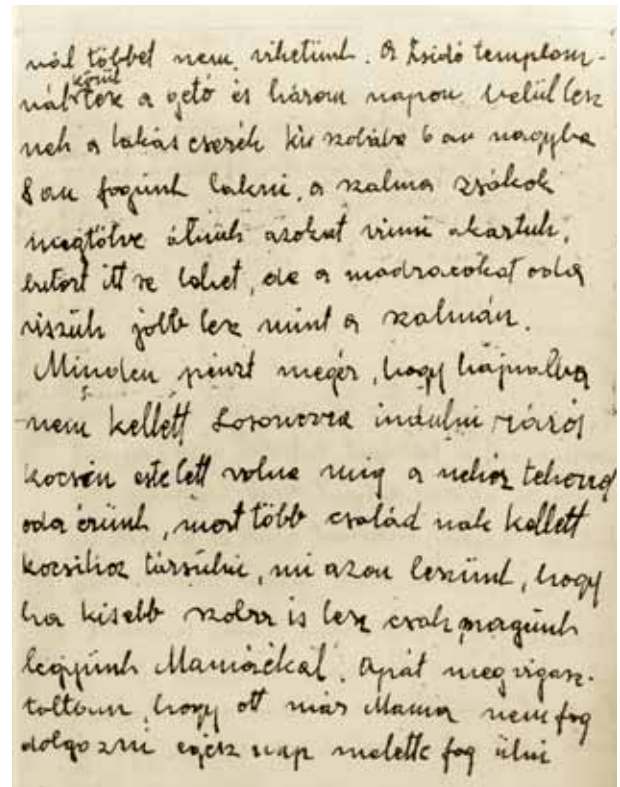 nál többet nem vihetünk. A zsidó templom-
nál körül lesz a getó és három napon belül lesz
nek a lakás cserék kis szobába 6 an nagyba
8 an fogunk lakni, a szalma zsákok
megtöltve állnak azokat vinni akartuk,
butort itt se lehet, de a madracokat oda
visszük jobb lesz mint a szalmán.
Minden pénzt megér, hogy hajnalba
nem kellett Losoncra indulni
kocsin este lett volna mig a nehéz teherrel
oda érünk, most több család nak kellett
kocsihoz társulni, mi azon leszünk, hogy
ha kisebb szoba is lesz csak magunk
legyünk Mamáékal. Apát meg vigasz-
taltam, hogy ott már Mama nem fog
dolgozni egész nap melette fog ülni